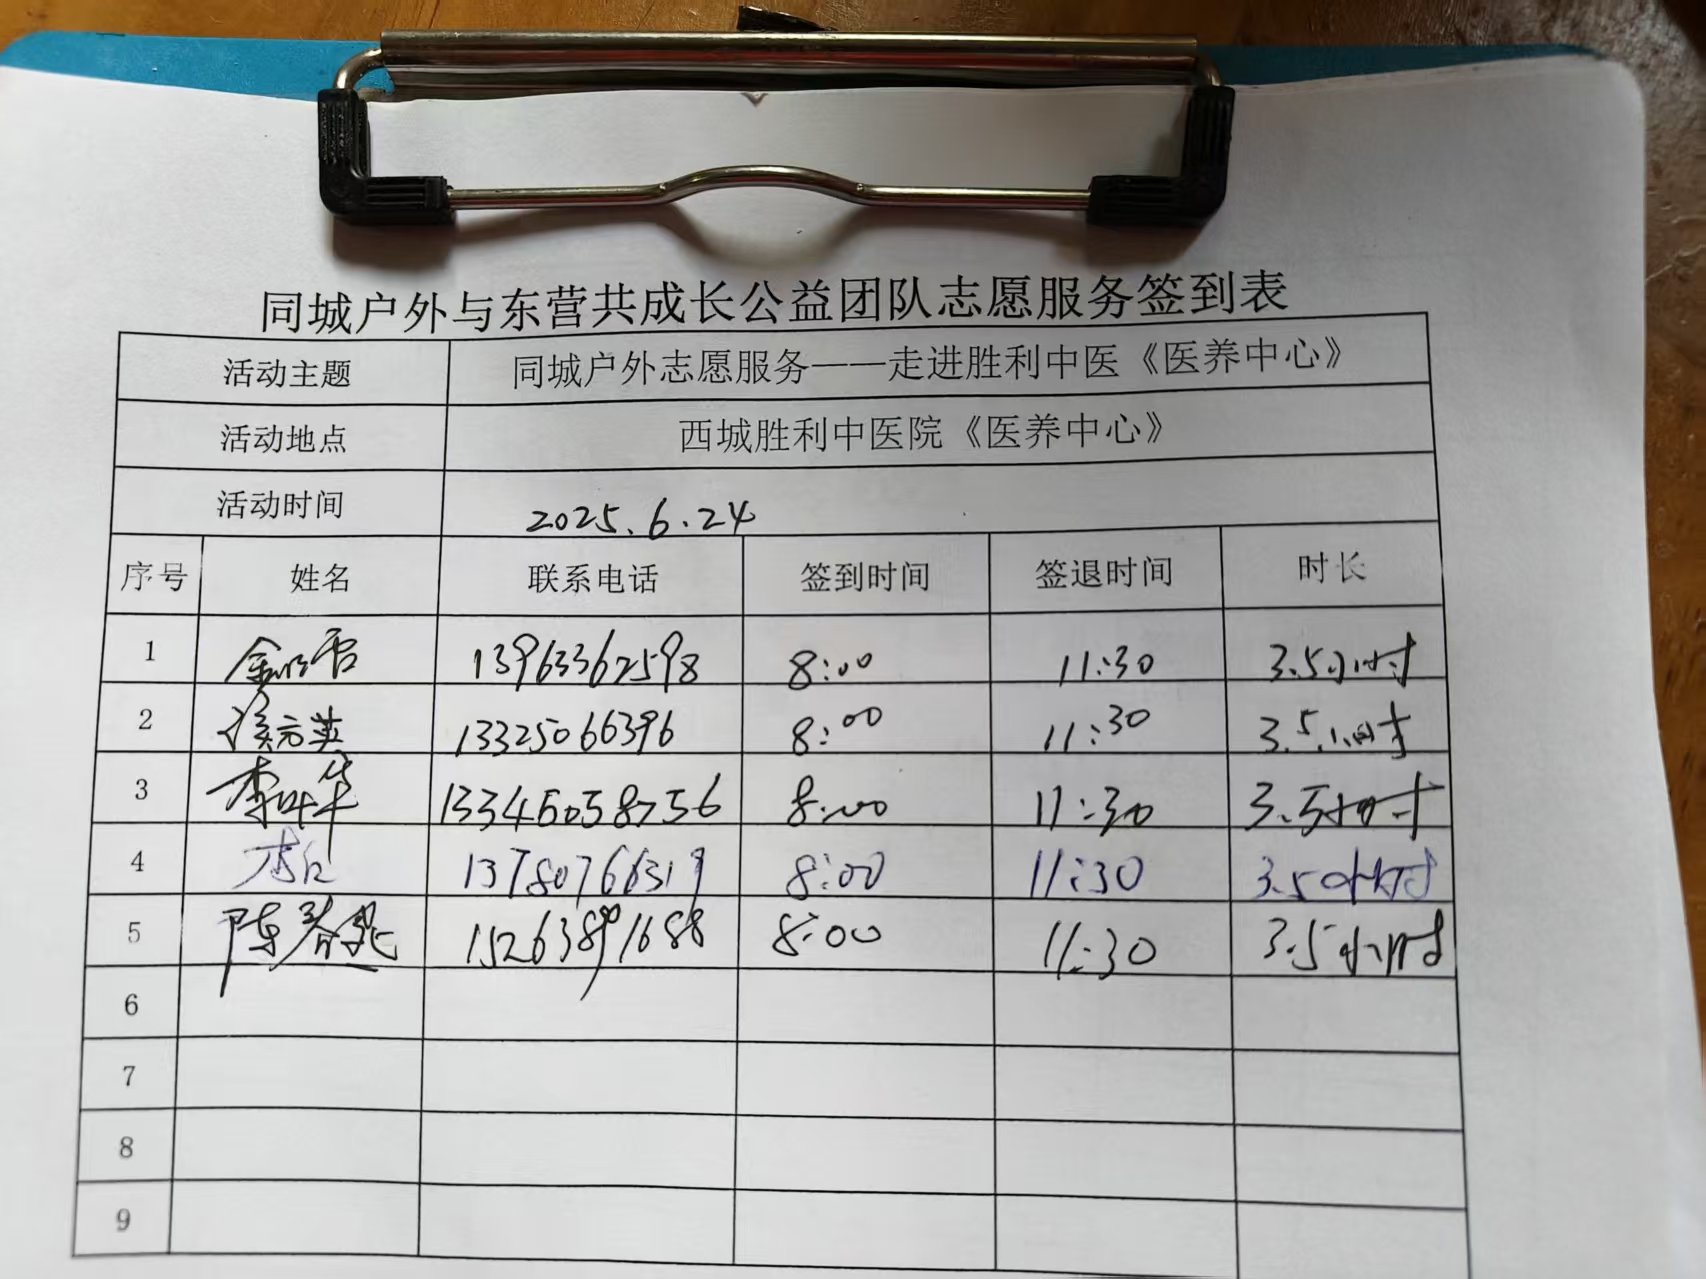 同城户外与东营共成长公益团队志愿服务签到表
活动主题 同城户外志愿服务——走进胜利中医《医养中心》
活动地点 西城胜利中医院《医养中心》
活动时间 2025.6.24
序号 姓名 联系电话 签到时间 签退时间 时长
1 13963362598 8:00 11:30 3.5小时
2 13325066396 8:00 11:30 3.5小时
3 李叶华 13345058756 8:00 11:30 3.5小时
4 13780766319 8:00 11:30 3.5小时
5 陈春 15263891688 8:00 11:30 3.5小时
6
7
8
9